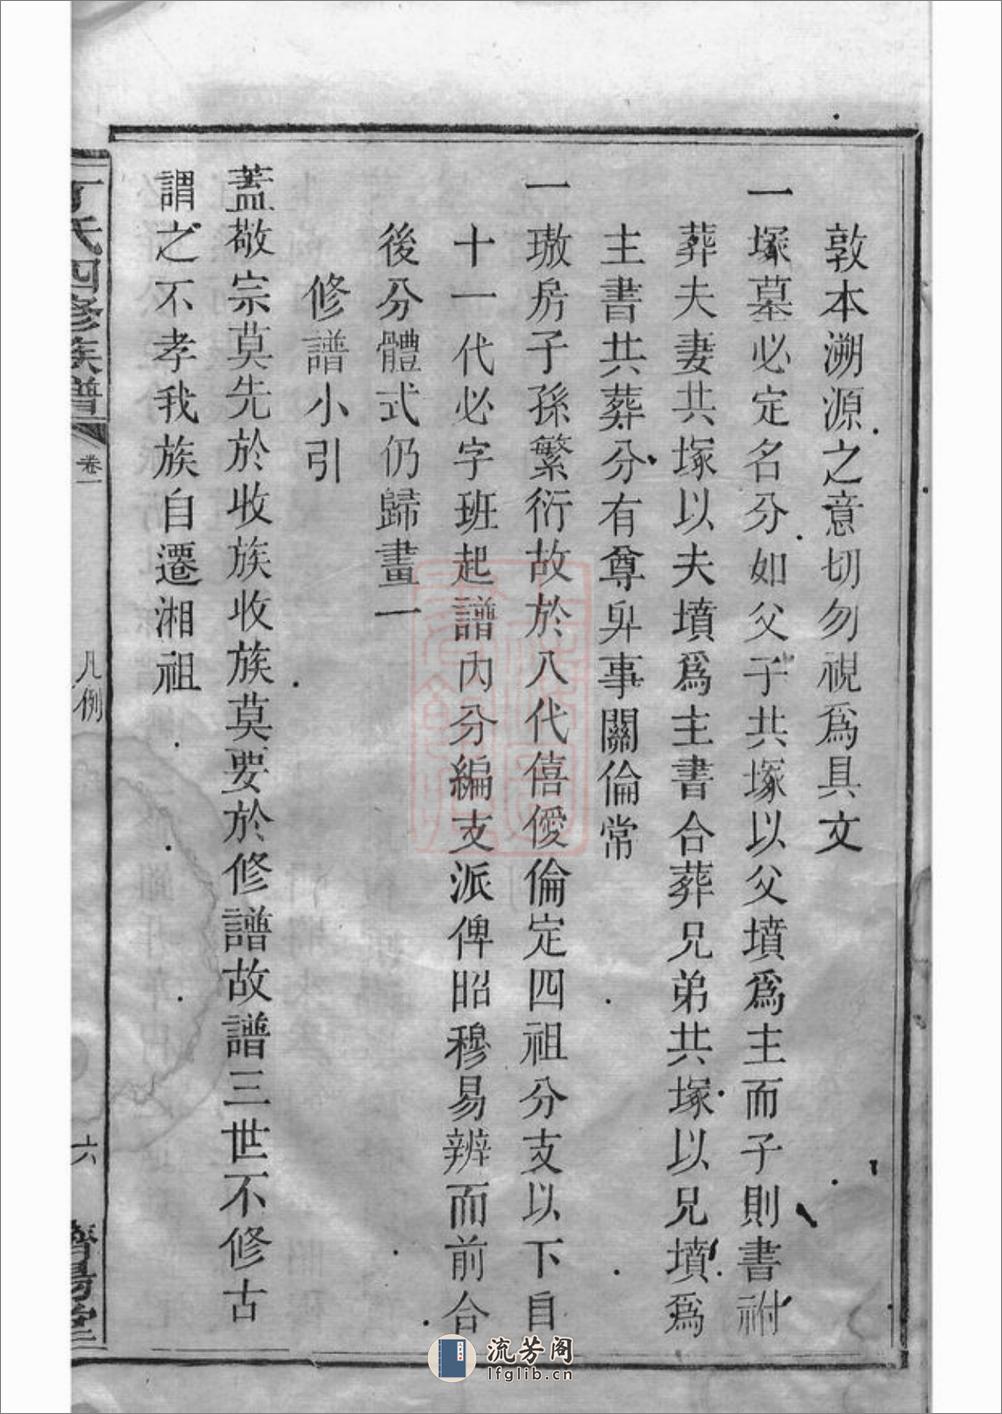 敦本溯源之意切勿視爲具文
一塚墓必定名分如父子共塚以父墳爲主而子則書祔
葬夫妻共塚以夫墳爲主書合葬兄弟共塚以兄墳爲
主書共葬分有尊卑事關倫常
一璈房子孫繁衍故於八代僖優倫定四祖分支以下自
十一代必字班起譜內分編支派俾昭穆易辨而前合
後分體式仍歸畫一
修譜小引
蓋敬宗莫先於收族收族莫要於修譜故譜三世不修古
謂之不孝我族自遷湘祖
丁氏四修族譜
卷一
凡例
六
濟陽堂
流芳阁
lfglib.cn